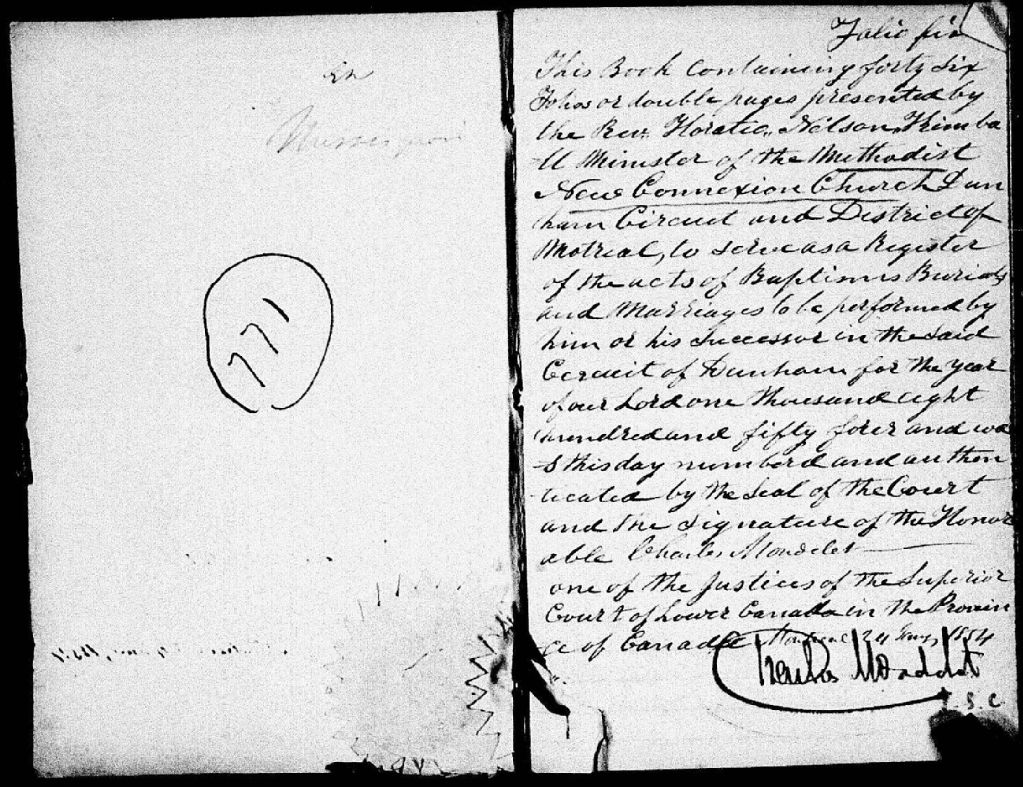 in
771
Folio
This Book Containing forty six
Folios or double pages presented by
the Rev. Horatio Nelson Kimba
ll Minister of the Methodist
New Connexion Church Dun
ham Circuit and District of
Motreal, to serve as a Register
of the acts of Baptisms Burials
and Marriages to be performed by
him or his successor in the said
Circuit of Dunham for the year
of our Lord one thousand eight
hundred and fifty four and wa
s this day numberd and authen
ticated by the Seal of the Court
and the signature of the Honor
able Charles Mondelet
one of the Justices of the Superior
Court of Lower Canada in the Provin
ce of Canada Montreal 24 Jany 1854
Charles Mondelet
J. S. C